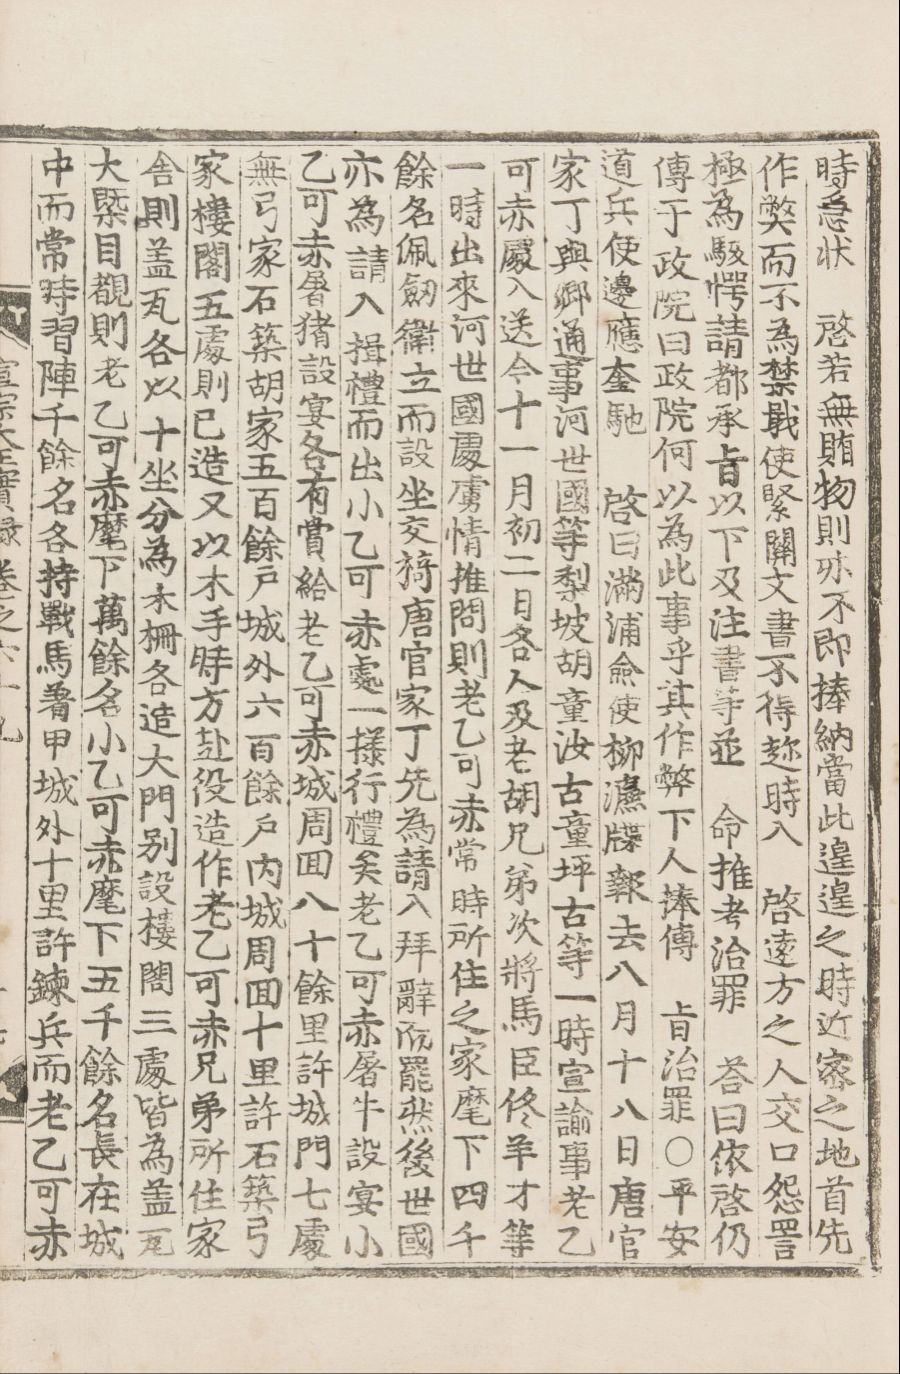 時急狀　啓若無賄物則亦不即捧納當此遑遑之時近密之地首先
作弊而不爲禁戢使緊關文書不得趂時入　啓遠方之人交口怨詈
極爲駭愕請都承旨以下及注書等並　命推考治罪　答曰依啓仍
傳于政院曰政院何以爲此事乎其作弊下人捧傳　旨治罪○平安
道兵使邊應奎馳　啓曰滿浦僉使柳濂牒報去八月十八日唐官
家丁與鄕通事河世國等梨坡胡童汝古童坪古等一時宣諭事老乙
可赤處入送今十一月初二日各人及老胡兄弟次將馬臣佟羊才等
一時出來河世國處虜情推問則老乙可赤常時所住之家麾下四千
餘名佩劒衛立而設坐交椅唐官家丁先爲請入拜辭而罷然後世國
亦爲請入揖禮而出小乙可赤處一樣行禮矣老乙可赤屠牛設宴小
乙可赤屠猪設宴各有賞給老乙可赤城周回八十餘里許城門七處
無弓家石築胡家五百餘戶城外六百餘戶內城周回十里許石築弓
家樓閣五處則已造又以木手時方赴役造作老乙可赤兄弟所住家
舍則盖瓦各以十坐分爲木柵各造大門別設樓閣三處皆爲盖瓦
大槩目覩則老乙可赤麾下萬餘名小乙可赤麾下五千餘名長在城
中而常時習陣千餘名各持戰馬着甲城外十里許鍊兵而老乙可赤
宣宗大王實錄卷之六十九